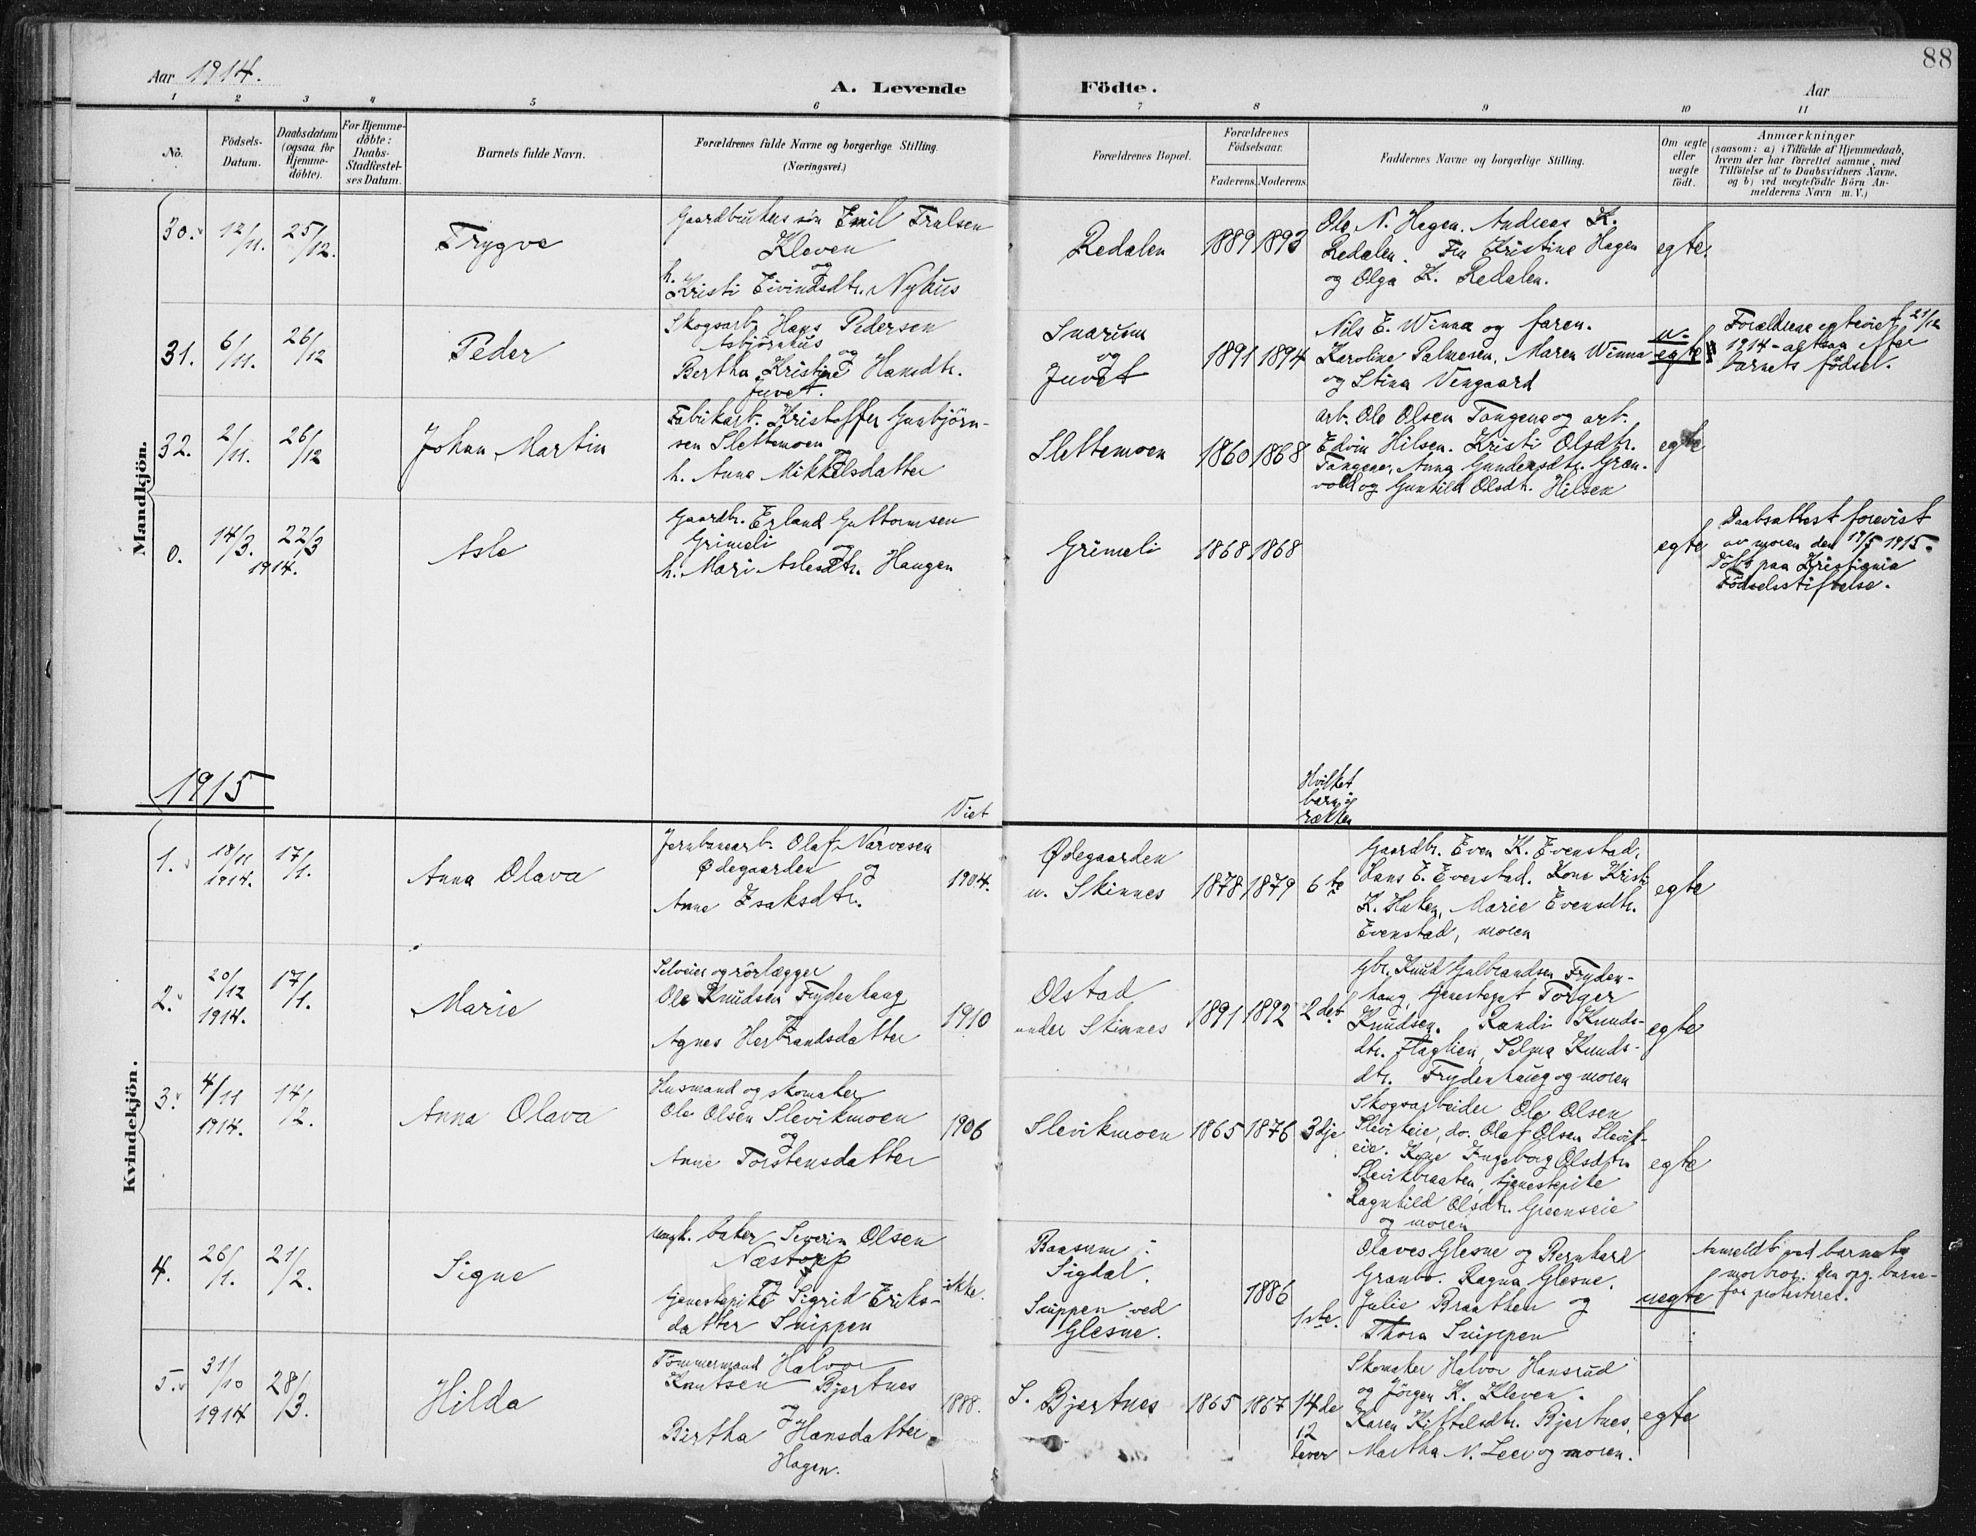 88
Aar 1914.
A. Levende Födte.
Aar
1 2 3 4 5 6 7 8 9 10 11
No.
Födsels-
Datum.
Daabsdatum
(ogsaa for
Hjemme-
döbte).
For Hjemme-
döbte:
Daabs-
Stadfæstel-
ses Datum.
Barnets fulde Navn.
Forældrenes fulde Navne og borgerlige Stilling
(Næringsvei.)
Forældrenes Bopæl.
Forældrenes
Födselsaar.
Faderens. Moderens.
Faddernes Navne og borgerlige Stilling.
Om ægte
eller
uægte
født.
Anmærkninger
(saasom: a) i Tilfælde af Hjemmedaab,
hvem der har forrettet samme, med
Tilföielse af to Daabsvidners Navne.
og b) ved uægtefödte Börn An-
melderens Navn m. V.)
Mandkjön.
30. 12/11. 25/12.
Trygve
Gaardbrukers søn Emil Trulsen
Kleven
og
h. Kristi Eivindsdtr. Nyhus
Redalen
1889 1893
Ole N. Hagen. Andreas K.
Redalen. Fru Kristine Hagen
og Olga K. Redalen.
egte.
31. 6/11. 26/12
Peder
Skogsarb. Hans Pedersen
Asbjørnhus
og
Bertha Kristine Hansdtr.
Juvet.
Snarum
og
Juvet
1891 1894
Nils E. Winna og faren.
Karoline Palmesen, Maren Winna
og Stina Vengaard
u-
egte
Forældrene egteviet 21/12
1914 - altsaa efter
barnets födsel.
32. 2/11. 26/12
Johan Martin
Fabrikarb. Kristoffer Gunbjörn-
sen Slettemoen
og
h. Anne Mikkelsdatter
Slettemoen
1860 1868
arb. Ole Olsen Tangene og arb.
Edvin Hilsen. Kristi Olsdtr.
Tangene, Anna Gundersdtr. Græn-
vold og Gunhild Olsdtr. Hilsen
egte
0. 14/3. 22/3
1914.
Asle
Gaardbr. Erland Guttormsen
Grimeli
og
h. Mari Aslesdtr. Haugen
Grimeli
1868 1868
egte
Daabsattest forevist
av moren den 19/5 1915.
Döbt paa Kristiania
Födselsstiftelse.
1915
Viet
Hvilket
barn i
rækken
Kvindekjön.
1. 18/11
1914. 17/1.
Anna Olava
Jernbanearb. Olaf Narvesen
Ødegaarden og
Anne Isaksdtr.
1904.
Ødegaarden
u. Skinnes
1878 1879 6te
Gaardbr. Even K. Evenstad,
Hans E. Evenstad. Kone Kristi
K. Huken, Marie Evensdtr.
Evenstad, moren
egte
2. 20/12
1914. 17/1.
Marie
Selveier og rörlægger
Ole Knudsen Frydenhaug
og
Agnes Herbrandsdatter
1910
Olstad
under Skinnes
1891 1892 2det
Gbr. Knud Gulbrandsen Fryden-
haug, tjenestegut Torger
Knudsen. Randi Knuds-
dtr. Flaglien, Selma Knuds-
dtr. Frydenhaug og moren
egte
3. 4/11
1914. 14/2.
Anna Olava
Husmand og skomaker
Ole Olsen Slevikmoen
og
Anne Torstensdatter
1906
Slevikmoen
1865 1876 3dje
Skogsarbeider Ole Olsen
Slevikeie, do. Olaf Olsen Slevik-
eie. Kone Ingeborg Olsdtr.
Slevikbraaten, tjenestepike
Ragnhild Olsdtr. Greenseie
og moren
egte
4. 26/1. 21/2.
Signe
ungk. baker Severin Olsen
Næstorp
og
tjenestepike Sigrid Eriks-
datter Snippen
ikke.
Baasum i
Sigdal.
Snippen ved
Glesne.
1886 1ste.
Olaves Glesne og Bernhard
Ragna Glesne.
Julie Braathen og
Thora Snippen
uegte
Anmeldt ved barnets
morbror. Den opg. barne-
far protesterer.
5. 31/10
1914 28/3.
Hilda
Tömmermand Halvor
Knutsen Bjertnes
og
Birtha Hansdatter
Hagen.
1888.
S. Bjertnes
1865 1867 14de
12
lever
Skomaker Halvor Hansrud
og Jörgen K. Kleven.
Karen Kittelsdtr. Bjertnes,
Martha N. Leer og moren.
egte